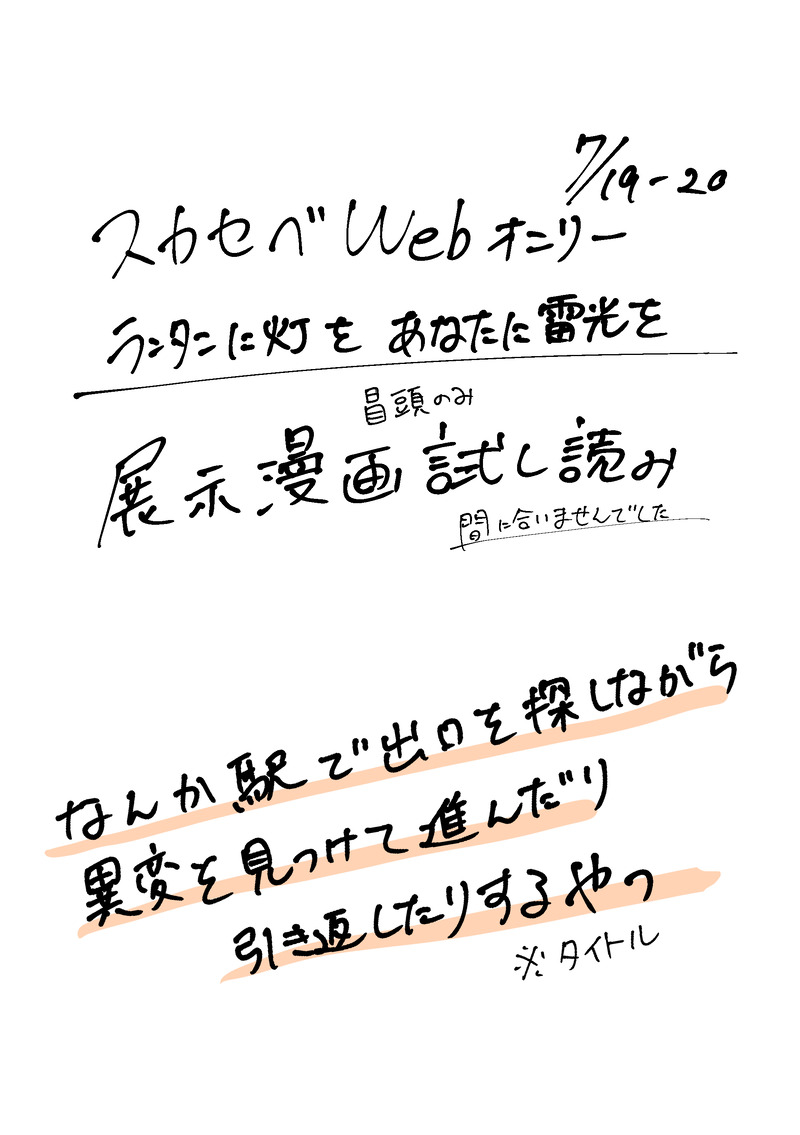 7/19-20
スカセベWebオンリー
ランタンに灯を あなたに雷光を
冒頭のみ
展示漫画試し読み
間に合いませんでした
なんか駅で出口を探しながら
異変を見つけて進んだり
引き返したりするやつ
※タイトル